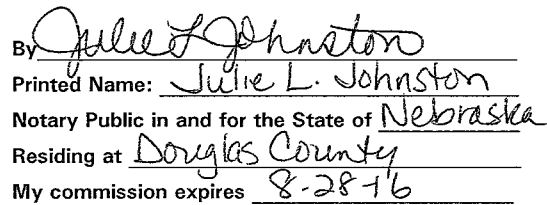 By Julie L Johnston
Printed Name: Julie L. Johnston
Notary Public in and for the State of Nebraska
Residing at Douglas County
My commission expires 8-28-16